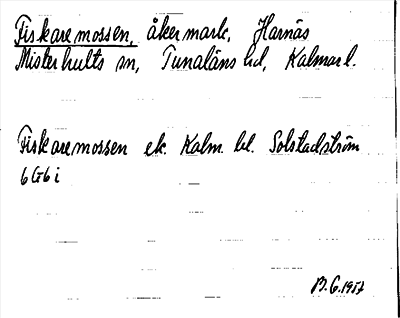 Fiskaremossen, åkermark, Harnäs
Misterhults sn, Tunaläns hd, Kalmar l.
Fiskaremossen ek. Kalm. bl. Solstadström
6 G 6 i
B.G. 1957